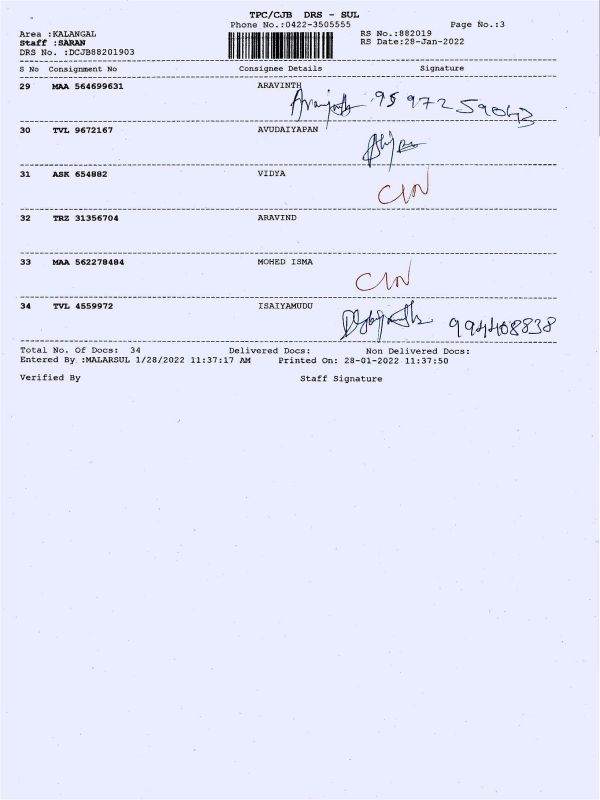 TPC/CJB DRS - SUL
Phone No.:0422-3505555 Page No.:3
Area :KALANGAL RS No.:882019
Staff :SARAN RS Date:28-Jan-2022
DRS No. :DCJB88201903
S No Consignment No Consignee Details Signature
29 MAA 564699631 ARAVINTH
30 TVL 9672167 AVUDAIYAPAN
31 ASK 654882 VIDYA
CLN
32 TRZ 31356704 ARAVIND
33 MAA 562278484 MOHED ISMA
CLN
34 TVL 4559972 ISAIYAMUDU
994408838
Total No. Of Docs: 34 Delivered Docs: Non Delivered Docs:
Entered By :MALARSUL 1/28/2022 11:37:17 AM Printed On: 28-01-2022 11:37:50
Verified By Staff Signature